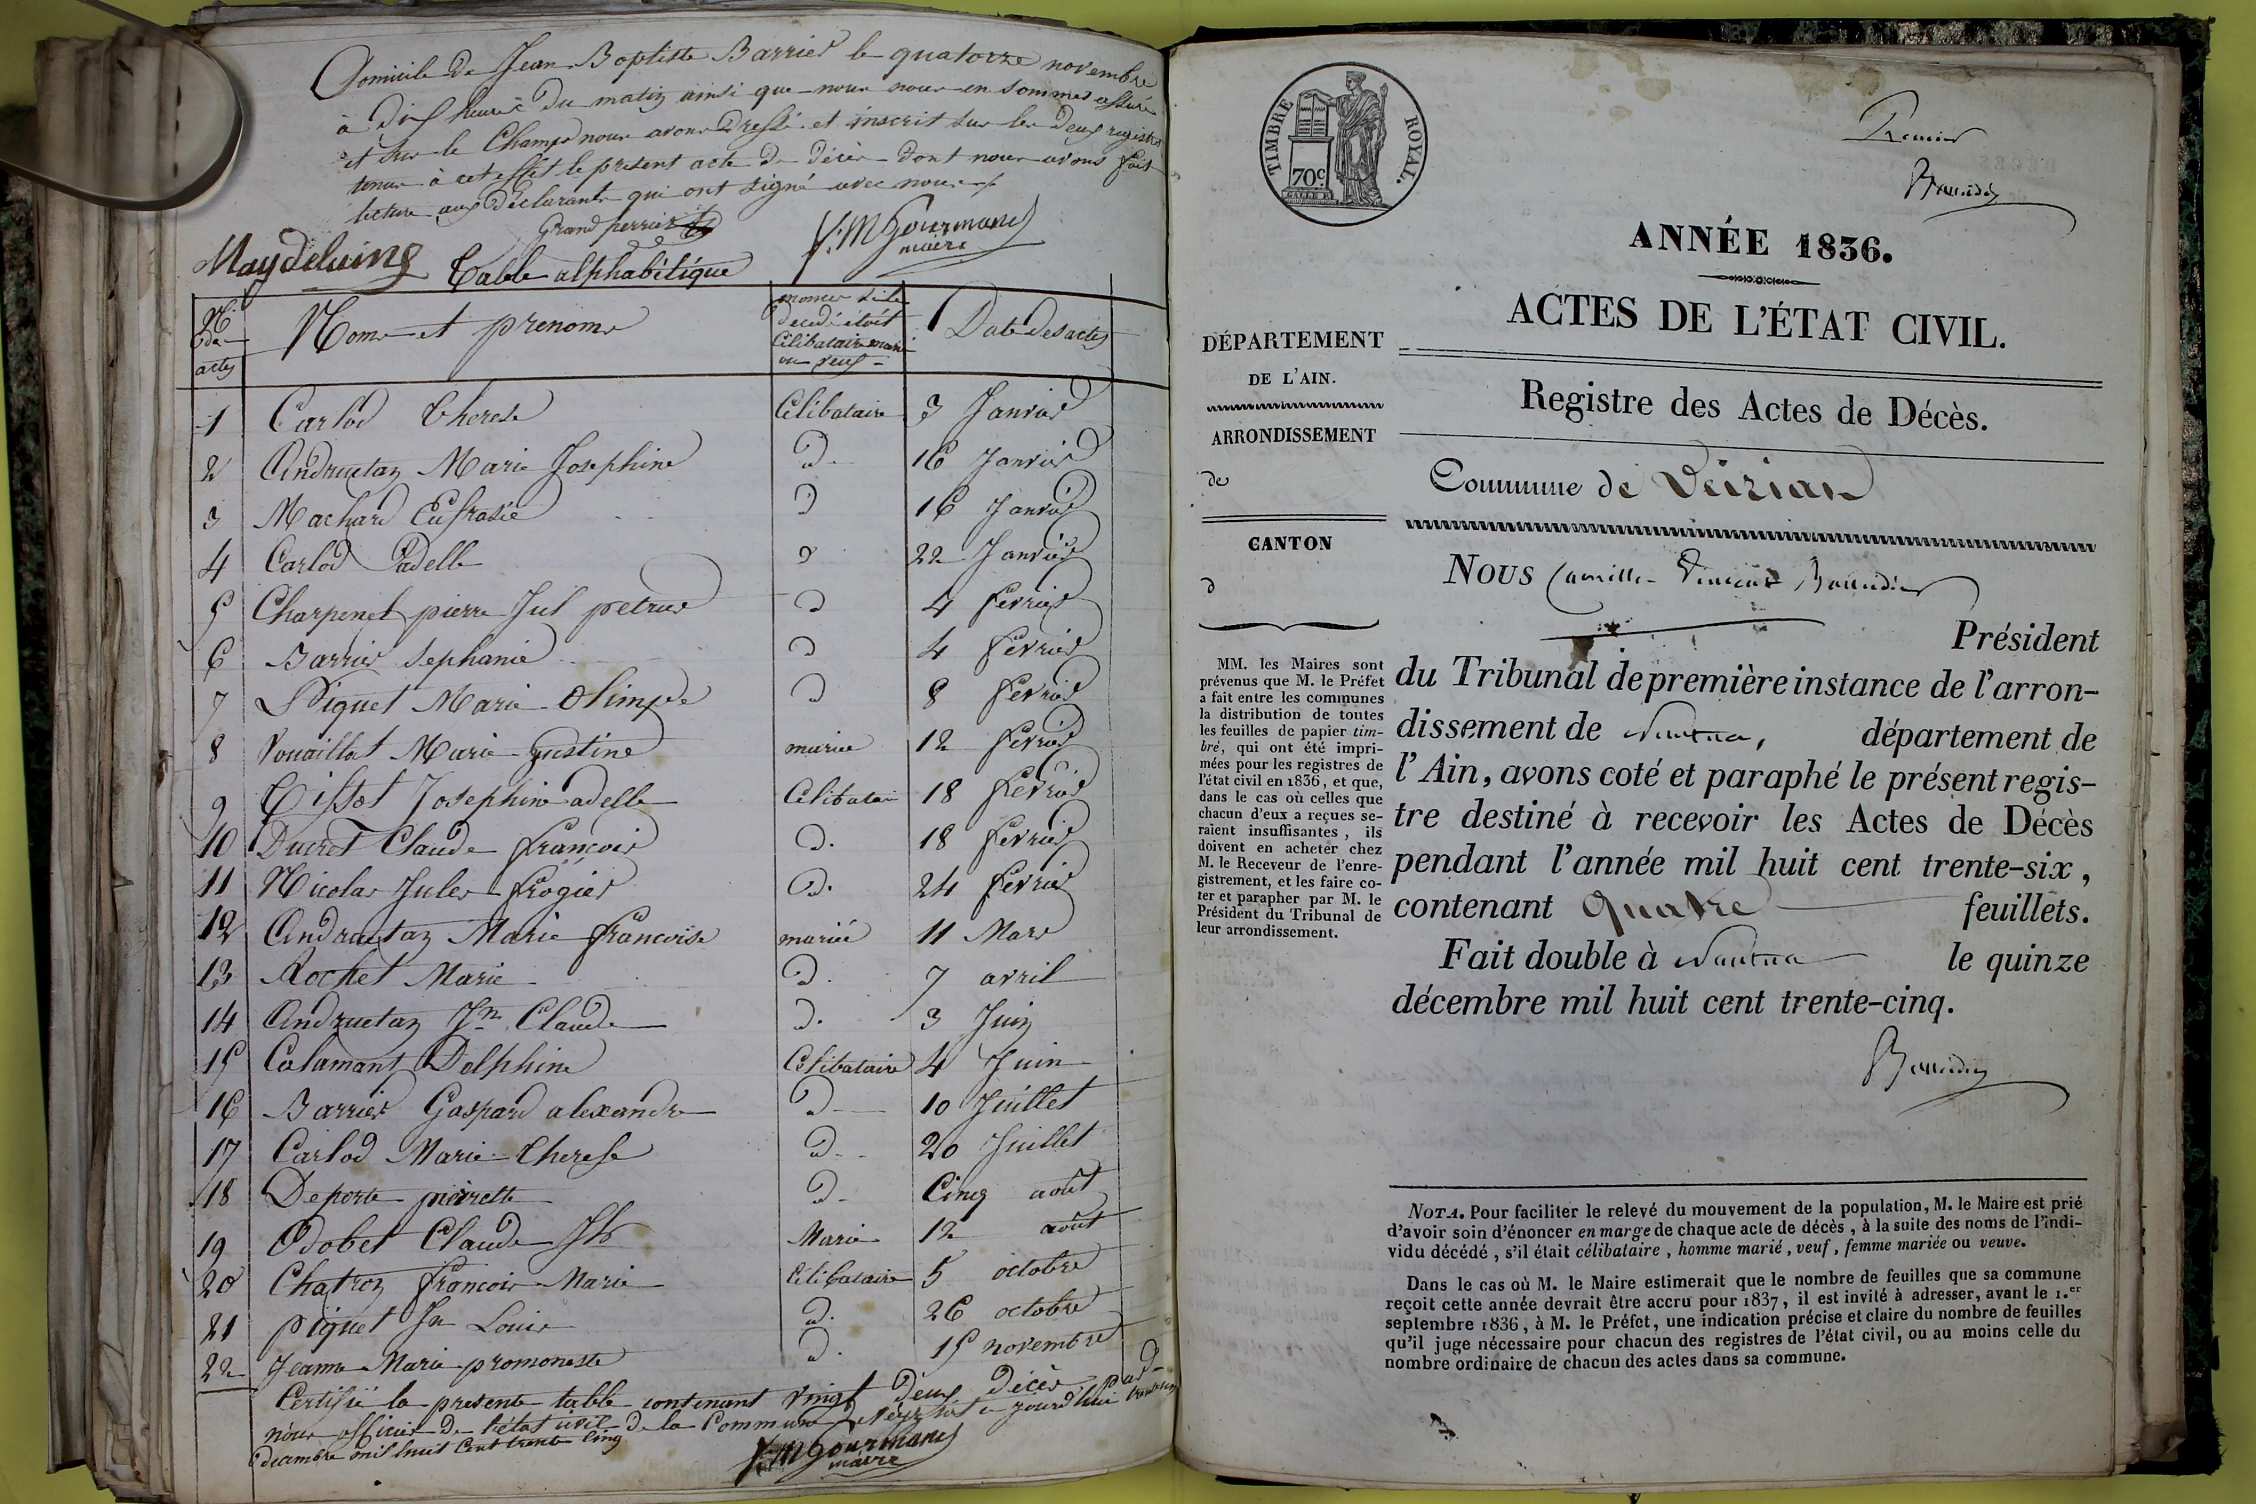 Domicile de Jean Baptiste Barrier le quatorze novembre
à dix heures du matin ainsi que nous nous en sommes assuré
et sur le Champ nous avons Dressé et inscrit sur les Deux registres
tenus à cet effet le présent acte de décès dont nous avons fait
lecture aux Déclarants qui ont signé avec nous
Grand perrier
J. M Gourmand
maire
Maydeluing
Table alphabétique
No de actes
Noms et prenoms
decedé étoit Célibataire marié ou veuf
Date des actes
1 Carlod Therese Célibataire 3 Janvier
2 Andruetan Marie Josephine D. 16 Janvier
3 Machard Eufrasie D 16 Janvier
4 Carlod adelle D 22 Janvier
5 Charpenel pierre Jul petrus D 4 fevrier
6 Barrier Sephanie D 4 fevrier
7 Piquet Marie Olimpe D 8 fevrier
8 Vouaillat Marie Justine mariée 12 fevrier
9 Tissot Josephine adelle Célibatair 18 fevrier
10 Ducret Claude françois D. 18 fevrier
11 Nicolas Jules frogier D. 24 fevrier
12 Andruetan Marie francoise mariée 11 Mars
13 Rochet Marie D. 7 avril
14 Andruetan Jn Claude D. 3 Juin
15 Calamant Delphine Célibataire 4 Juin
16 Barrier Gaspard alexandre D 10 Juillet
17 Carlod Marie Therese D 20 Juillet
18 Deporte pierrette D Cinq août
19 Odobet Claude Jh Marié 12 août
20 Chatron francois Marie Célibataire 5 octobre
21 piquet Jn Louis D. 26 octobre
22 Jeanne Marie promoneste D. 15 novembre
Certifié la presente table contenant vingt Deux Décès par
nous officier De l'état civil de la Commune de Veyziat ce jourd'hui
décembre mil huit Cent trente Cinq
J. M Gourmand
maire
TIMBRE ROYAL.
70c
Premier
ANNÉE 1836.
ACTES DE L'ÉTAT CIVIL.
Registre des Actes de Décès.
Commune de Veiziat
DÉPARTEMENT
DE L'AIN.
ARRONDISSEMENT
de
CANTON
d
MM. les Maires sont
prévenus que M. le Préfet
a fait entre les communes
la distribution de toutes
les feuilles de papier tim-
bré, qui ont été impri-
mées pour les registres de
l'état civil en 1836, et que,
dans le cas où celles que
chacun d'eux a reçues se-
raient insuffisantes, ils
doivent en acheter chez
M. le Receveur de l'enre-
gistrement, et les faire co-
ter et parapher par M. le
Président du Tribunal de
leur arrondissement.
NOUS Camille Vincent
Président
du Tribunal de première instance de l'arron-
dissement de Nantua, département de
l'Ain, avons coté et paraphé le présent regis-
tre destiné à recevoir les Actes de Décès
pendant l'année mil huit cent trente-six,
contenant quatre feuillets.
Fait double à Nantua le quinze
décembre mil huit cent trente-cinq.
NOTA. Pour faciliter le relevé du mouvement de la population, M. le Maire est prié
d'avoir soin d'énoncer en marge de chaque acte de décès, à la suite des noms de l'indi-
vidu décédé, s'il était célibataire, homme marié, veuf, femme mariée ou veuve.
Dans le cas où M. le Maire estimerait que le nombre de feuilles que sa commune
reçoit cette année devrait être accru pour 1837, il est invité à adresser, avant le 1.er
septembre 1836, à M. le Préfet, une indication précise et claire du nombre de feuilles
qu'il juge nécessaire pour chacun des registres de l'état civil, ou au moins celle du
nombre ordinaire de chacun des actes dans sa commune.